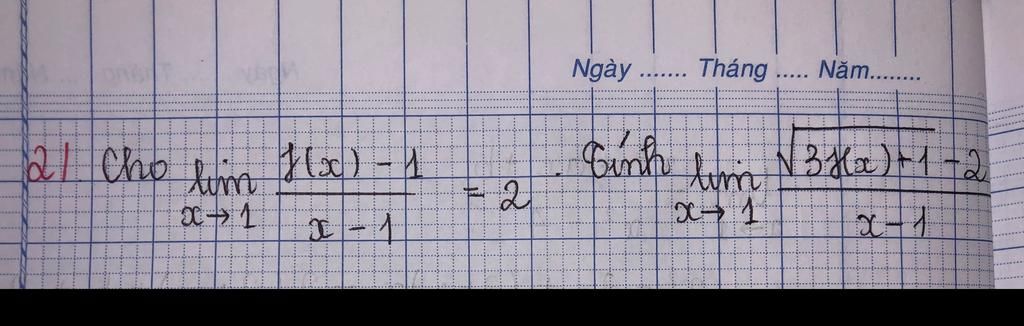 Ngày ....... Tháng ..... Năm........
2/ Cho lim x→1 f(x) - 1 / x - 1 = 2. Tính lim x→1 √3f(x)+1 - 2 / x-1